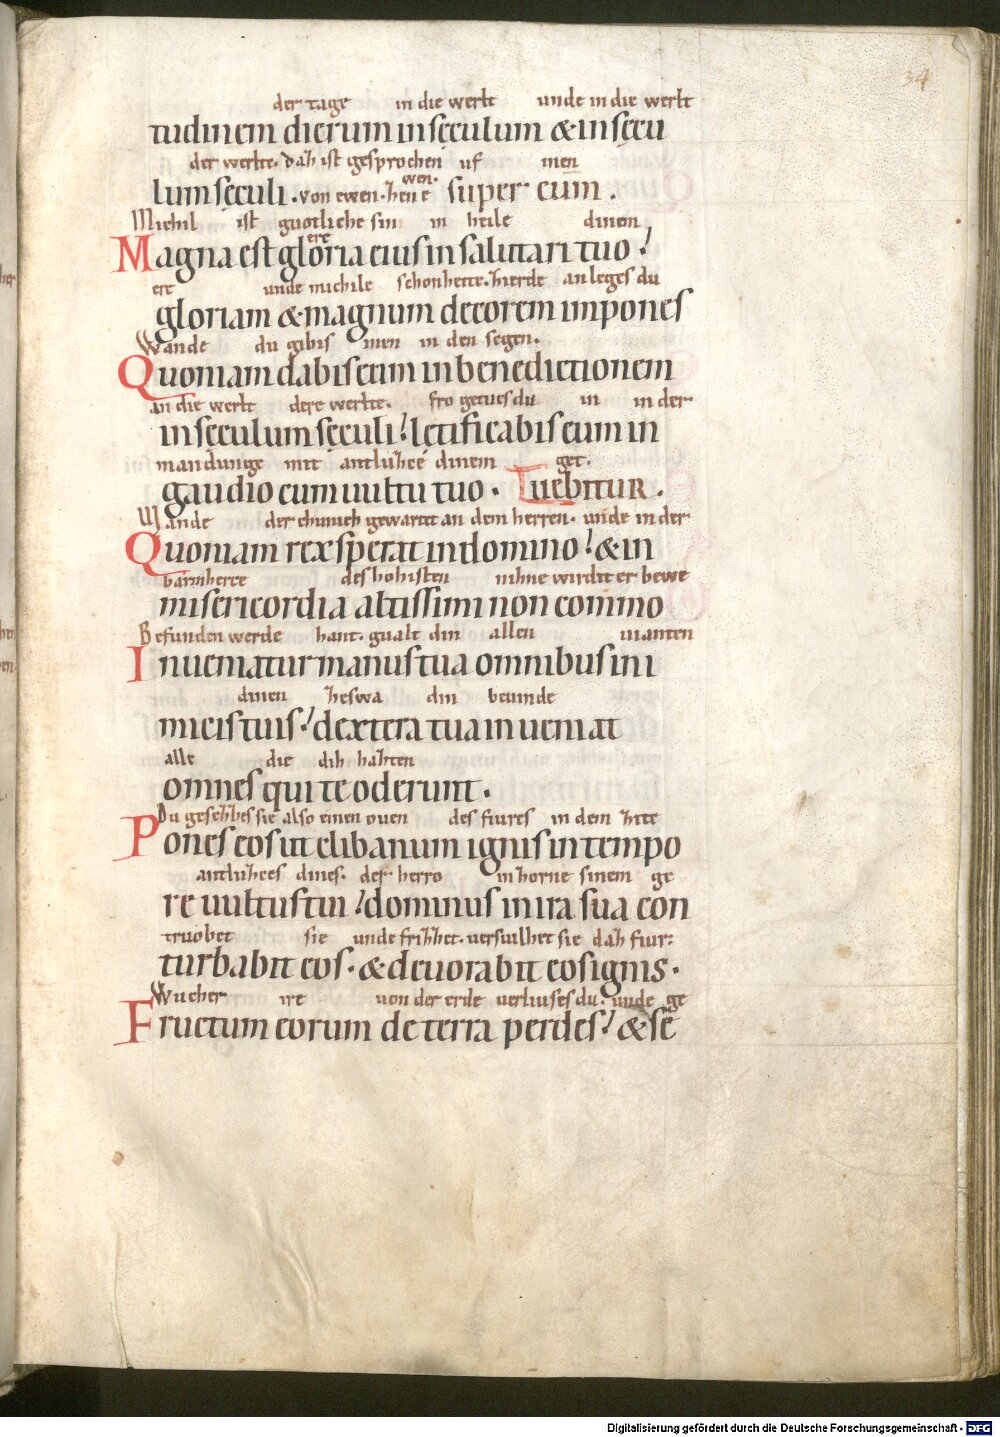 34
der tage in die werlt unde in die werlt
tudinem dierum in sęculum & in sęcu
der werlte. dah ist gesprochen uf inen
lum sęculi . von ewen . hen ewen. super eum .
Michil ist guotliche sin in heile dinem
Magna est gloria eius in salutari tuo ere
ere unde michile schonheite. hierde anleges du
gloriam & magnum decorem inpones
Wande du gibis inen in den segen.
Quoniam dabis eum in benedictionem
an die werlt dere werlte. fro getues du in in der
in sęculum sęculi ! lętificabis eum in
mandunge mit antluhee dinem get.
gaudio cum uultu tuo . tuebitur .
Wande der chunich gewartet an dem herren. unde in der
Quoniam rex sperat in domino ! & in
barmherce des hohisten nihne wirdit er bewe
misericordia altissimi non commo
Befunden werde hant. gualt din allen uianten
Inueniatur manus tua omnibus ini
dinen heswa din beuinde
micis tuis ! dextera tua inueniat
alle die dih hahten
omnes qui te oderunt .
Du geseh̄hes sie also einen ouen des fiures in dem hite
Pones eos ut clibanum ignis in tempo
antluhees dines. der herro in horne sinem ge
re uultus tui ! dominus in ira sua con
truobet sie unde frihhet. uersuilhet sie dah fiur:
turbabit eos . & deuorabit eos ignis .
Wucher ire uon der erde uerliuses du. unde ge
Fructum eorum de terra perdes ! & sē
Digitalisierung gefördert durch die Deutsche Forschungsgemeinschaft - DFG